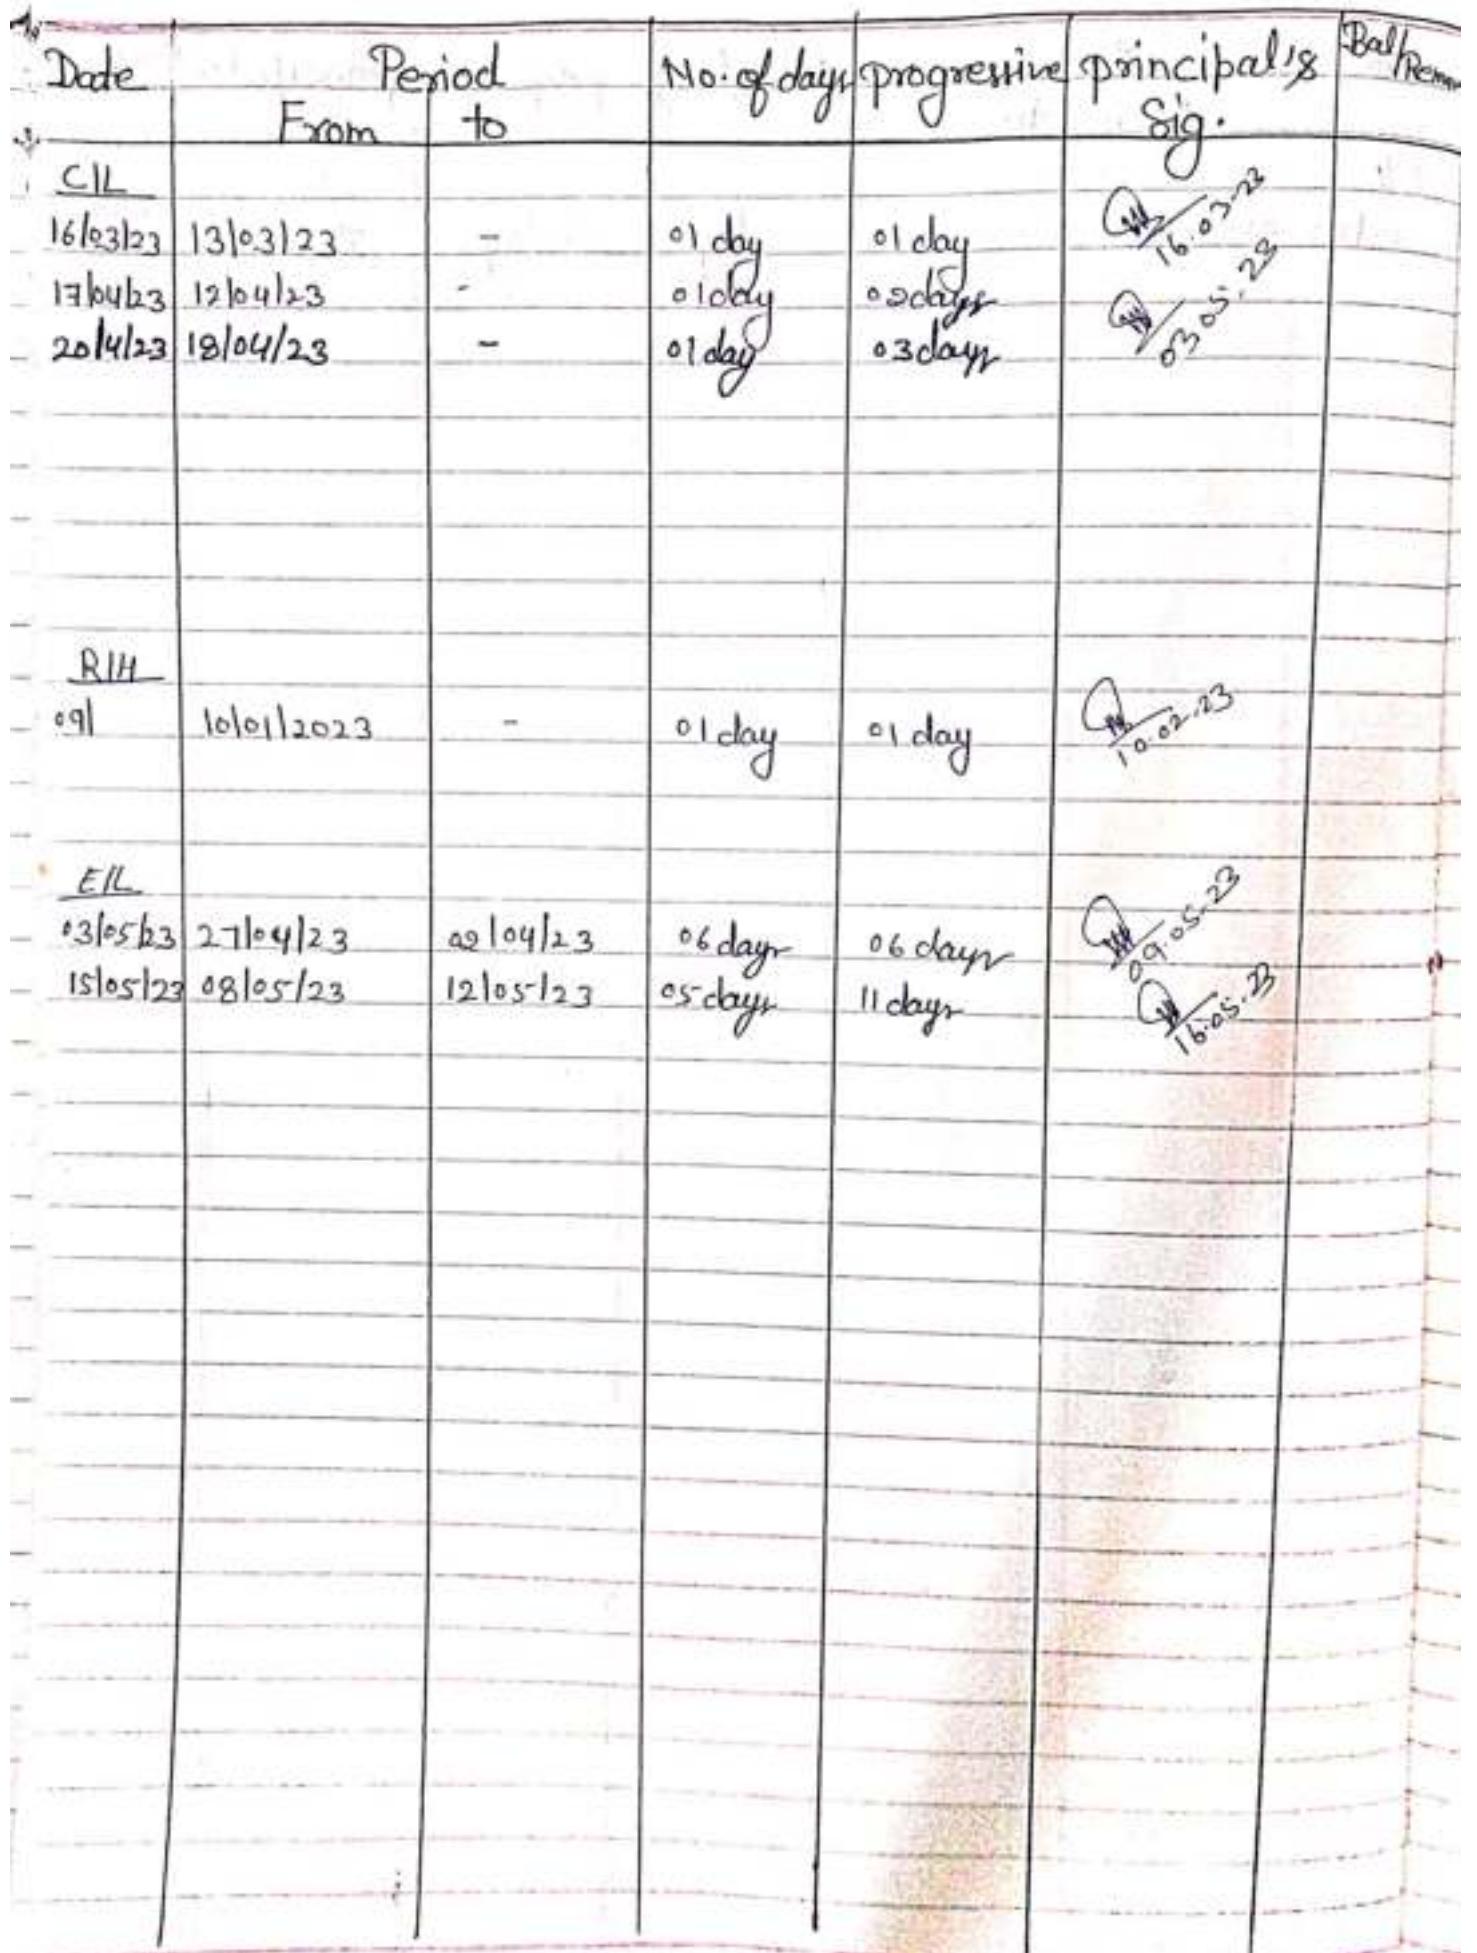 Date Period No. of days progressive principal's Bal/
From to Sig.
C/L
16/03/23 13/03/23 - 01 day 01 day 16.03.23
17/04/23 12/04/23 - 01 day 02 days 03.05.23
20/4/23 18/04/23 - 01 day 03 days
R/H
09/ 10/01/2023 - 01 day 01 day 10.02.23
E/L
03/05/23 27/04/23 02/04/23 06 days 06 days 09.05.23
15/05/23 08/05/23 12/05/23 05 days 11 days 16.05.23